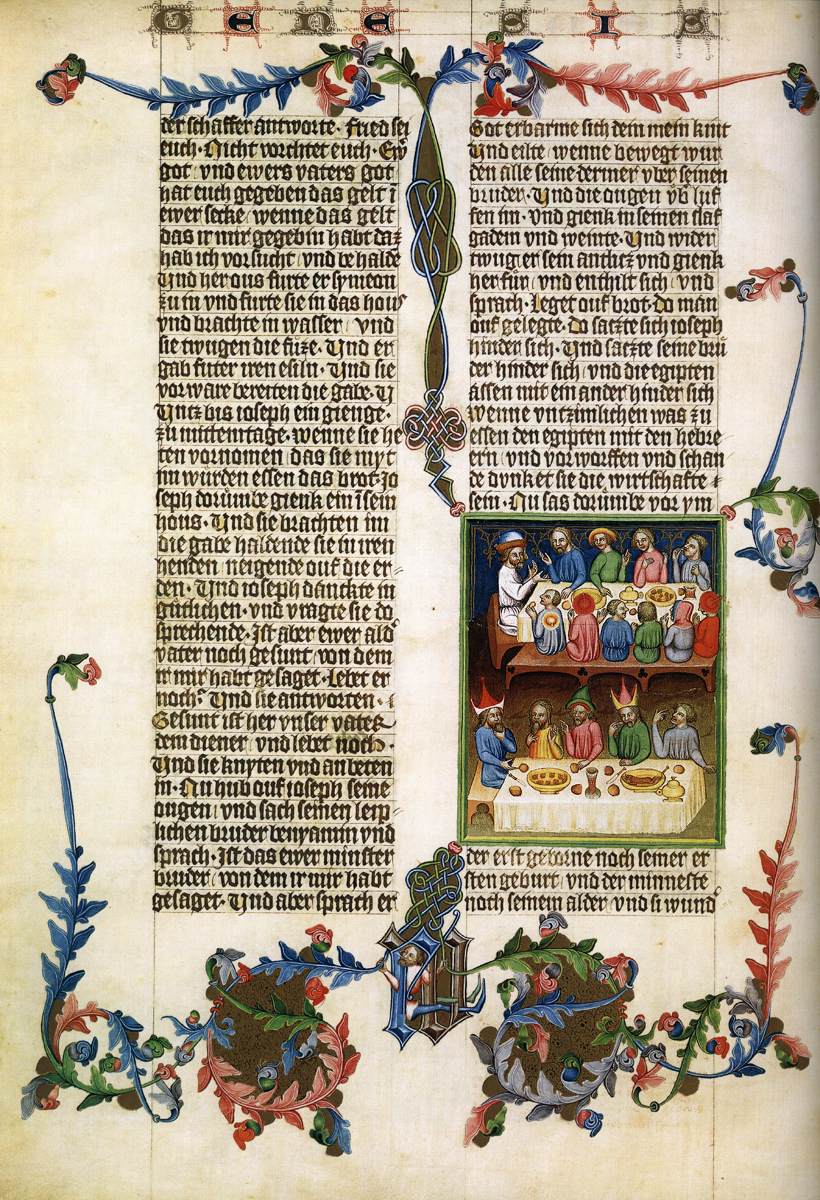 GENESIS
der schaffer antworte. Frid sei
euch. Nicht vorchtet euch. Ew̄
got und ewers vaters got
hat euch gegeben das gelt ī
ewer secke wenne das gelt
das ir mir gegebin habt daz
hab ich vorsucht und behalde
Und her ous furte er symeon
zu in und furte sie in das hous
vnd brachte in wasser vnd
sie twugen die fuze. Und er
gab futer iren esiln. Und sie
vorware bereiten die gabe. U
Untz bis ioseph ein gienge.
zu mittemtage. wenne sie he
ten vornomen das sie myt
im wurden essen das brot. Jo
seph dorumbe gienk ein ī sein
hous. Und sie brachten im
die gabe haldende sie in iren
henden neigende ouf die er
den. Und ioseph danckte in
gutlichen. vnd vragte sie do
sprechende. Ist aber ewer ald
vater noch gesunt von dem
ir mir habt gesaget. Lebet er
noch. Und sie antworten.
Gesunt ist her vnser vater
dem diener vnd lebet noch.
Und sie knyten vnd anbeten
in. Nu hub ouf ioseph seine
ougen vnd sach seinen leip
lichen bruder benyamin vnd
sprach. Ist das ewer minster
bruder von dem ir mir habt
gesaget. Und aber sprach er
Got erbarme sich dein mein kint
Und eilte wenne bewegt wur
den alle seine dermer vber seinen
bruder. Und die ougen vb luf
fen im. vnd gienk in seinen slaf
gadem vnd weinte. Und wider
twug er sein antlutz vnd gienk
her fur vnd enthilt sich vnd
sprach. Leget ouf brot. do man
ouf gelegte. do saczte sich ioseph
hinder sich. Und saczte seine bru
der hinder sich vnd die egipten
assen mit ein ander hinder sich
Wenne vntzimlichen was zu
essen den egipten mit den hebre
ern vnd vorworffen vnd schan
de dunket sie die wirtschafte
sein. Nu sas dorumbe vor ym
der erst geborne noch seiner er
sten geburt vnd der minneste
noch seinem alder vnd si wund